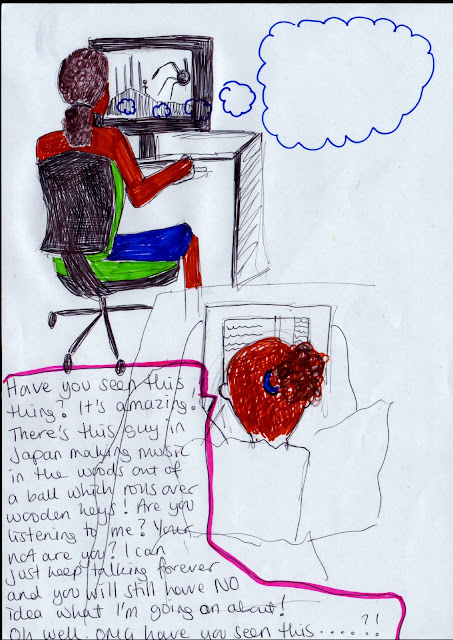 Have you seen this
thing? It's amazing!
There's this guy in
Japan making music
in the woods out of
a ball which rolls over
wooden keys! Are you
listening to me? Your
not are you? I can
just keep talking forever
and you will still have NO
idea what I'm going on about!
Oh well. OMG have you seen this......?!